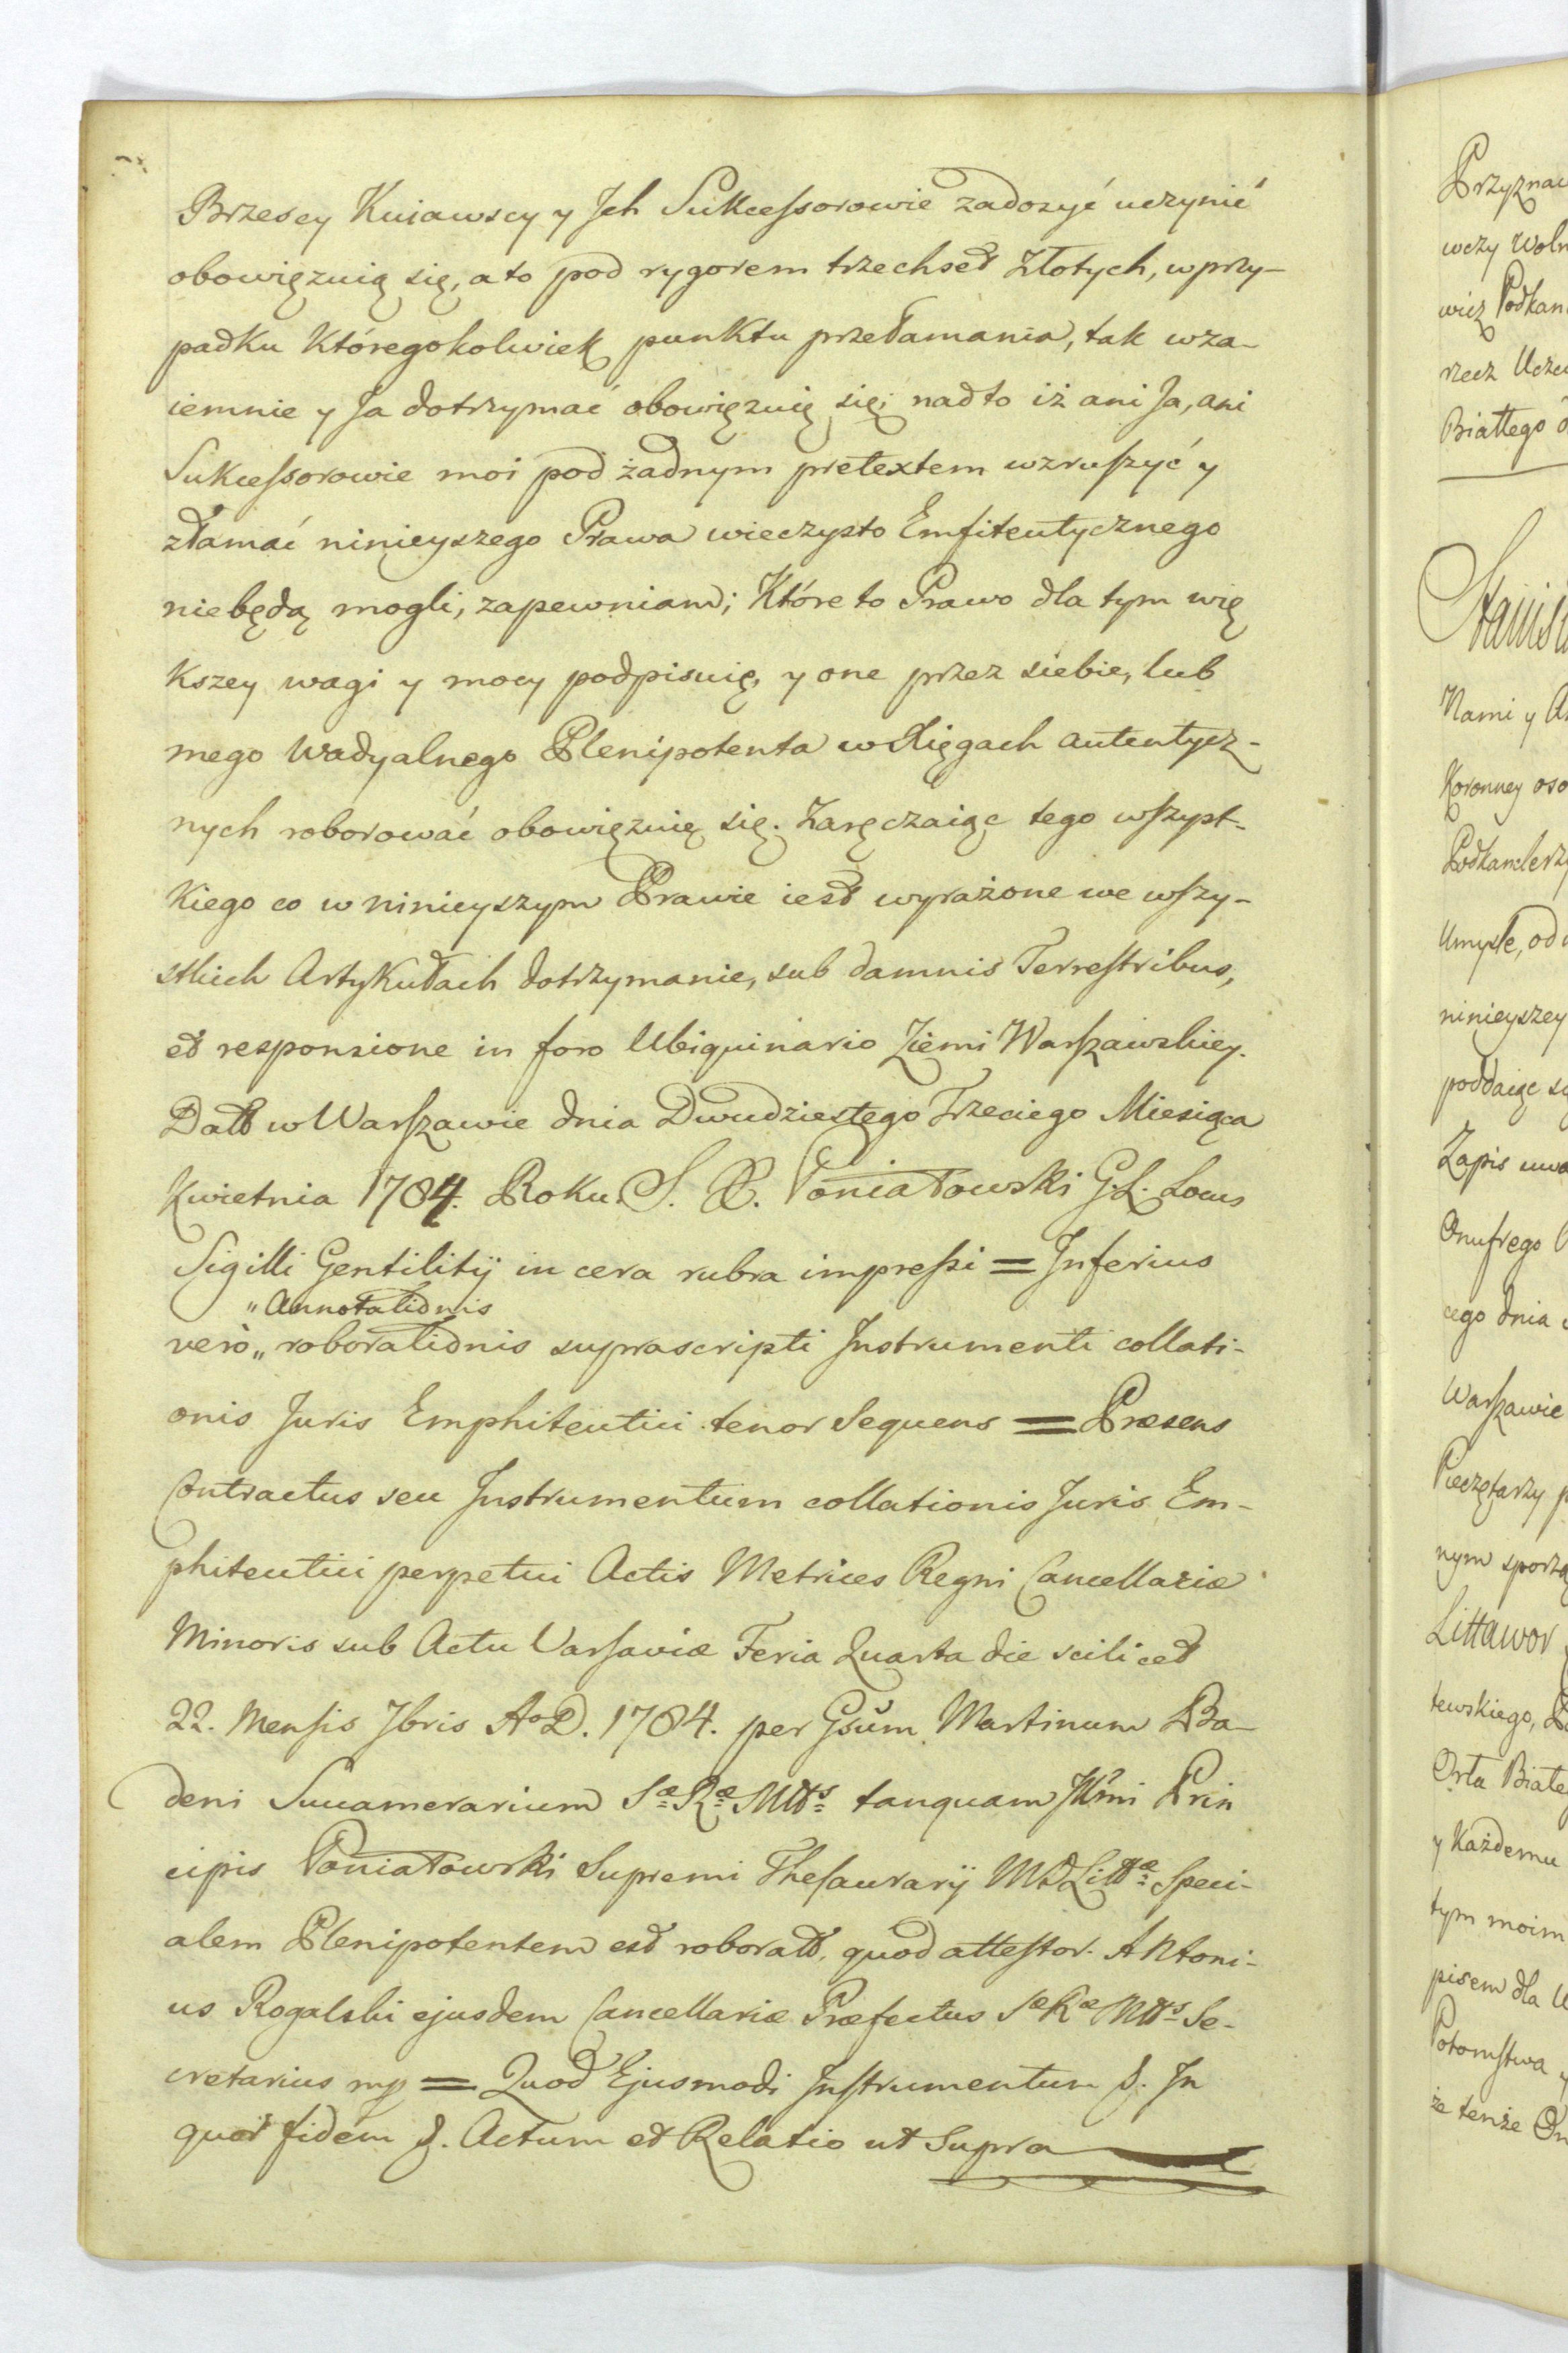 Brzescy Kuiawscy y Jch Sukceſsorowie zadozyć uczynić
obowięzuią się, a to pod rygorem trzechset Złotych, w przy-
padku któregokolwiek punktu przełamania, tak wza-
iemnie y Ja dotrzymać obowięzuię się; nadto iż ani Ja, ani
Sukceſsorowie moi pod żadnym pretextem wzruſzyć y
złamać ninieyszego Prawa wieczysto Emfiteutycznego
niebędą mogli, zapewniam; Które to Prawo dla tym wię
kszey wagi y mocy podpisuię, y one przez siebie, lub
mego Wadyalnego Plenipotenta w Xięgach autentycz-
nych roborować obowięzuię się. Zaręczaiąc tego wſzyst-
kiego co w ninieyszym Prawie iest wyrażone we wſzy-
stkich Artykułach dotrzymanie, sub damnis Terreſtribus,
et responsione in foro Ubiquinario Ziemi Warſzawskiey.
Datt w Warſzawie dnia Dwudziestego Trzeciego Miesiąca
Kwietnia 1784. Roku. S. X. Poniatowski G. L. Locus
Sigilli Gentilitij in cera rubra impreſsi = Inferius
"Annotationis
verò „ roborationis suprascripti Instrumenti collati-
onis Juris Emphiteutici tenor Sequens = Præsens
Contractus seu Instrumentum collationis Juris Em-
phiteutici perpetui Actis Metrices Regni Cancellariæ
Minoris sub Actu Varſaviæ Feria Quarta die scilicet
22. Menſis Jbris Aº D. 1784. per Gsūm Martinum Ba-
deni Succamerarium Sæ Ræ Mtts tanquam Jllmi Prin
cipis Poniatowski Supremi Theſaurarij M D Littæ Speci-
alem Plenipotentem est roboratt, quod atteſtor. Antoni-
us Rogalski ejusdem Cancellariæ Præfectus Sæ Ræ Mtts Se-
cretarius mp = Quod Ejusmodi Inſtrumentum &. In
quor̄ fidem &. Actum et Relatio ut Supra
Przyznac
wczy Woln
wicz Podkan
rzecz Ucze
Białłego
Stanisł
Nami y A
Koronney oso
Podkanclerzy
Umyśle, od
ninieyszey
poddaiąc s
Zapis uwa
Onufrego
cego dnia
Warſzawie
Pieczętarzy p
nym sporzą
Littawor
tewskiego,
Orła Białe
y Każdemu
tym moim
pisem dla
Potomſtwa
że tenże On